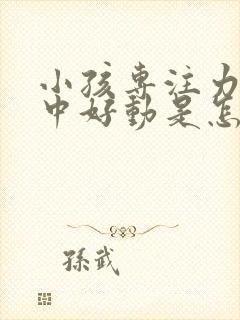 小孩专注力
中好动是怎
孫武